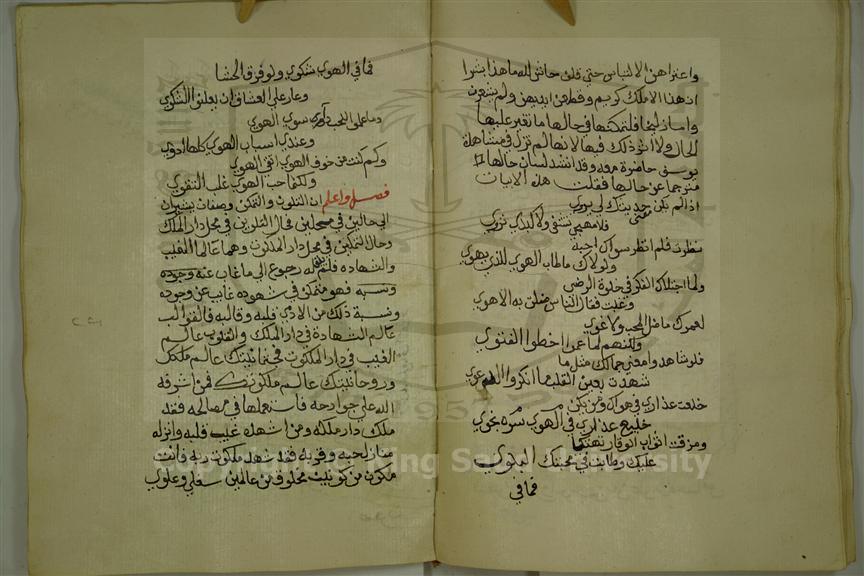 واعتراهن الالتباس حتى قلن حاش لله ما هذا بشرا
ان هذا الا ملك كريم وقطعن ايديهن ولم يشعرن
واما زليخا فلتمكنها في حالها ما تغير عليها
الحال ولا اثر ذلك فيها لانها لم تزل في مشاهدة
يوسف حاضرة معه وقد انشد لسان حالها
مترجما عن حالها فقلت هذه الابيات
اذا لم يكن معنى حديثك لي يروى
فلا مهجتي تشفى ولا كبدي تروى
نظرت فلم انظر سواك احبه
ولولاك ما طاب الهوى للذي يهوى
ولما اجتلاك الفكر في خلوة الرضى
وغيبت قال الناس ضلت به الاهوى
لعمرك ما ضل المحب ولا غوى
ولكنهم لما عموا اخطوا الفتوى
فلو شاهدوا معنى جمالك مثل ما
شهدت بعين القلب ما انكروا الدعوى
خلعت عذاري في هواك ومن يكن
خليع عذار في الهوى سره نجوى
ومزقت اثواب الوقار تهتكا
عليك وطابت في محبتك البلوى
فما في
فما في الهوى شكوى ولو فرق الحشا
وعار على العشاق ان يعلنوا الشكوى
وما على الحب سوى الهوى
وعندي اسباب الهوى كلها ادوى
وكم كنت من خوف الهوى اتقي الهوى
ولكنما حب الهوى غلب التقوى
فصل واعلم ان التلوين والتمكن وصفان يشيران
الى حالين في محلين فحال التلوين في محل دار الملك
وحال التمكين في محل دار الملكوت وهما عالما الغيب
والشهاده فلم له رجوع الى ما غاب عنه وجوده
ونسبه فهو متمكن في شهوده غايب عن وجوده
ونسبة ذلك من الادمي قلبه وقالبه فالقوالب
عالم الشهادة في دار الملك والقلوب عالم
الغيب في دار الملكوت عالم ملكك
وروحانيتك عالم ملكوتك فمن اشرفه
الله على جوارحه فاستعملها في مصالحه فقد
ملك دار ملكه ومن اشهده غيب قلبه وانزله
منازل حبه وقربه فقد شهد ملكوت ربه فانت
مكون من كونين مخلوق من عالمين سفلي وعلوي
Copyright © King Saud University
195